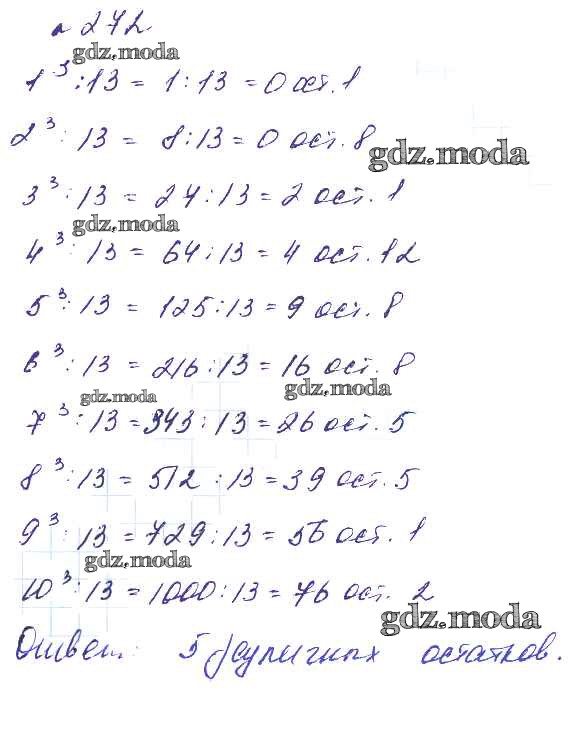 № 272.
gdz.moda
1³ : 13 = 1 : 13 = 0 ост. 1
2³ : 13 = 8 : 13 = 0 ост. 8
gdz.moda
3³ : 13 = 27 : 13 = 2 ост. 1
gdz.moda
4³ : 13 = 64 : 13 = 4 ост. 12
5³ : 13 = 125 : 13 = 9 ост. 8
6³ : 13 = 216 : 13 = 16 ост. 8
gdz.moda
gdz.moda
7³ : 13 = 343 : 13 = 26 ост. 5
8³ : 13 = 512 : 13 = 39 ост. 5
9³ : 13 = 729 : 13 = 56 ост. 1
gdz.moda
10³ : 13 = 1000 : 13 = 76 ост. 2
gdz.moda
Ответ: 5 остатков.